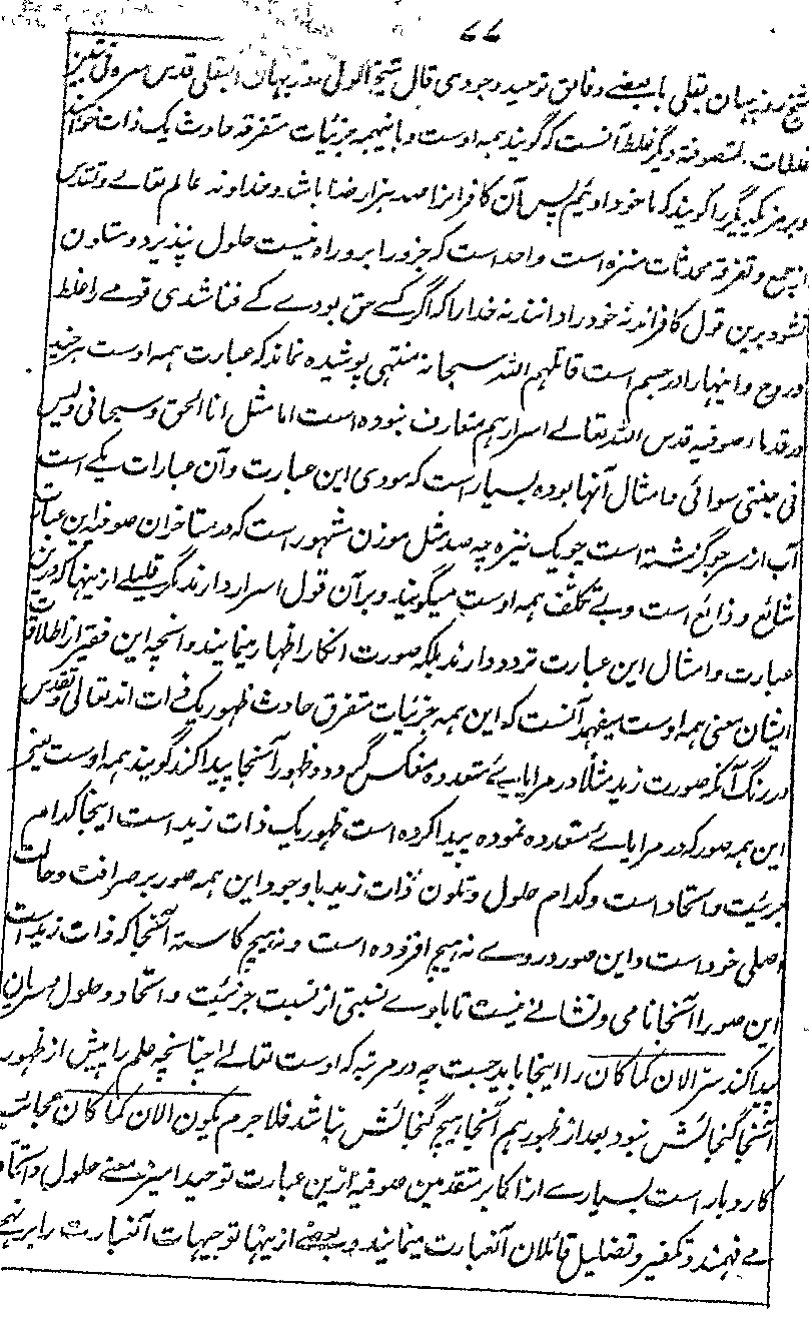 ۷۷
شیخ روزبهان بقلی با بعضے دقائق توحید وجودی قال شیخ الولی روزبهان البقلی قدس سره فی تقریر
غلطات المتصوفة دیگر غلط آنست که گویند همه اوست و باینهمه جزئیات متفرقه حادث یک ذات خواهند
و بر مز یکدیگر را گویند که ما خود اوئیم پس آن کافرانرا صد هزار رضا باشد و خداوند عالم تعالے و تقدس
از جمع و تفرقه محدثات منزه است واحد است که جزو را برو راه نیست حلول نپذیرد و متلون
نشود برین قول کافراند نه خود را دانند نه خدا را که اگر کے حق بودے کے فنا شدی قومے را غلط
در روح و اینها را در جسم است قاتلهم الله سبحانه منتهی پوشیده نماند که عبارت همه اوست هر چند
در قدماء صوفیه قدس الله تعالے اسرارهم متعارف نبوده است اما مثل انا الحق و سبحانی و لیس
فی جبتی سوائی و امثال آنها بوده بسیار است که مودی این عبارت و آن عبارات یکے است
آب از سر چو گزشته است چو یک نیزه چه صد مثل موزن شهور است که در متاخران صوفیه این عبارت
شائع و ذائع است و بے تکلف همه اوست میگویند و بر آن قول اسرار دارند مگر قلیلے از ینها که درین
عبارت و امثال این عبارت تردد دارند بلکه صورت انکار اظهار مینمایند و آنچه این فقیر از اطلاقات
ایشان معنی همه اوست میفهمد آنست که این همه جزئیات متفرق حادث ظهور یک ذات اند تعالی و تقدس
در رنگ آنکه صورت زید مثلا در مرایائے متعدده منعکس گردد و ظهور آنجا پیدا کند گویند همه اوست یعنی
این همه صور که در مرایائے متعدده نموده پیدا کرده است ظهور یک ذات زید است اینجا کدام
جزئیت و اتحاد است و کدام حلول و تلون ذات زید با وجود این همه صور بر صرافت و حالت
اصلی خود است و این صور در وے نه هیچ افزوده است و نه هیچ کاسته آنجا که ذات زید است
این صور را آنجا نامی و نشانے نیست تا با وے نسبتی از نسبت جزئیت و اتحاد و حلول و سریان
پیدا کند سر الآن کما کان را اینجا باید جست چه در مرتبه که اوست تعالے چنانچه عالم را پیش از ظهور
آنجا گنجائش نبود بعد از ظهور هم آنجا هیچ گنجائش نباشد فلا جرم یکون الآن کما کان عجائب
کاروبار است بسیارے از اکابر متقدمین صوفیه ازین عبارت توحید امیز معنے حلول و اتحاد
مے فهمند و تکفیر و تضلیل قائلان آنعبارت مینمایند و بعضے از ینها توجیهات آنعبارت را بر نهجے